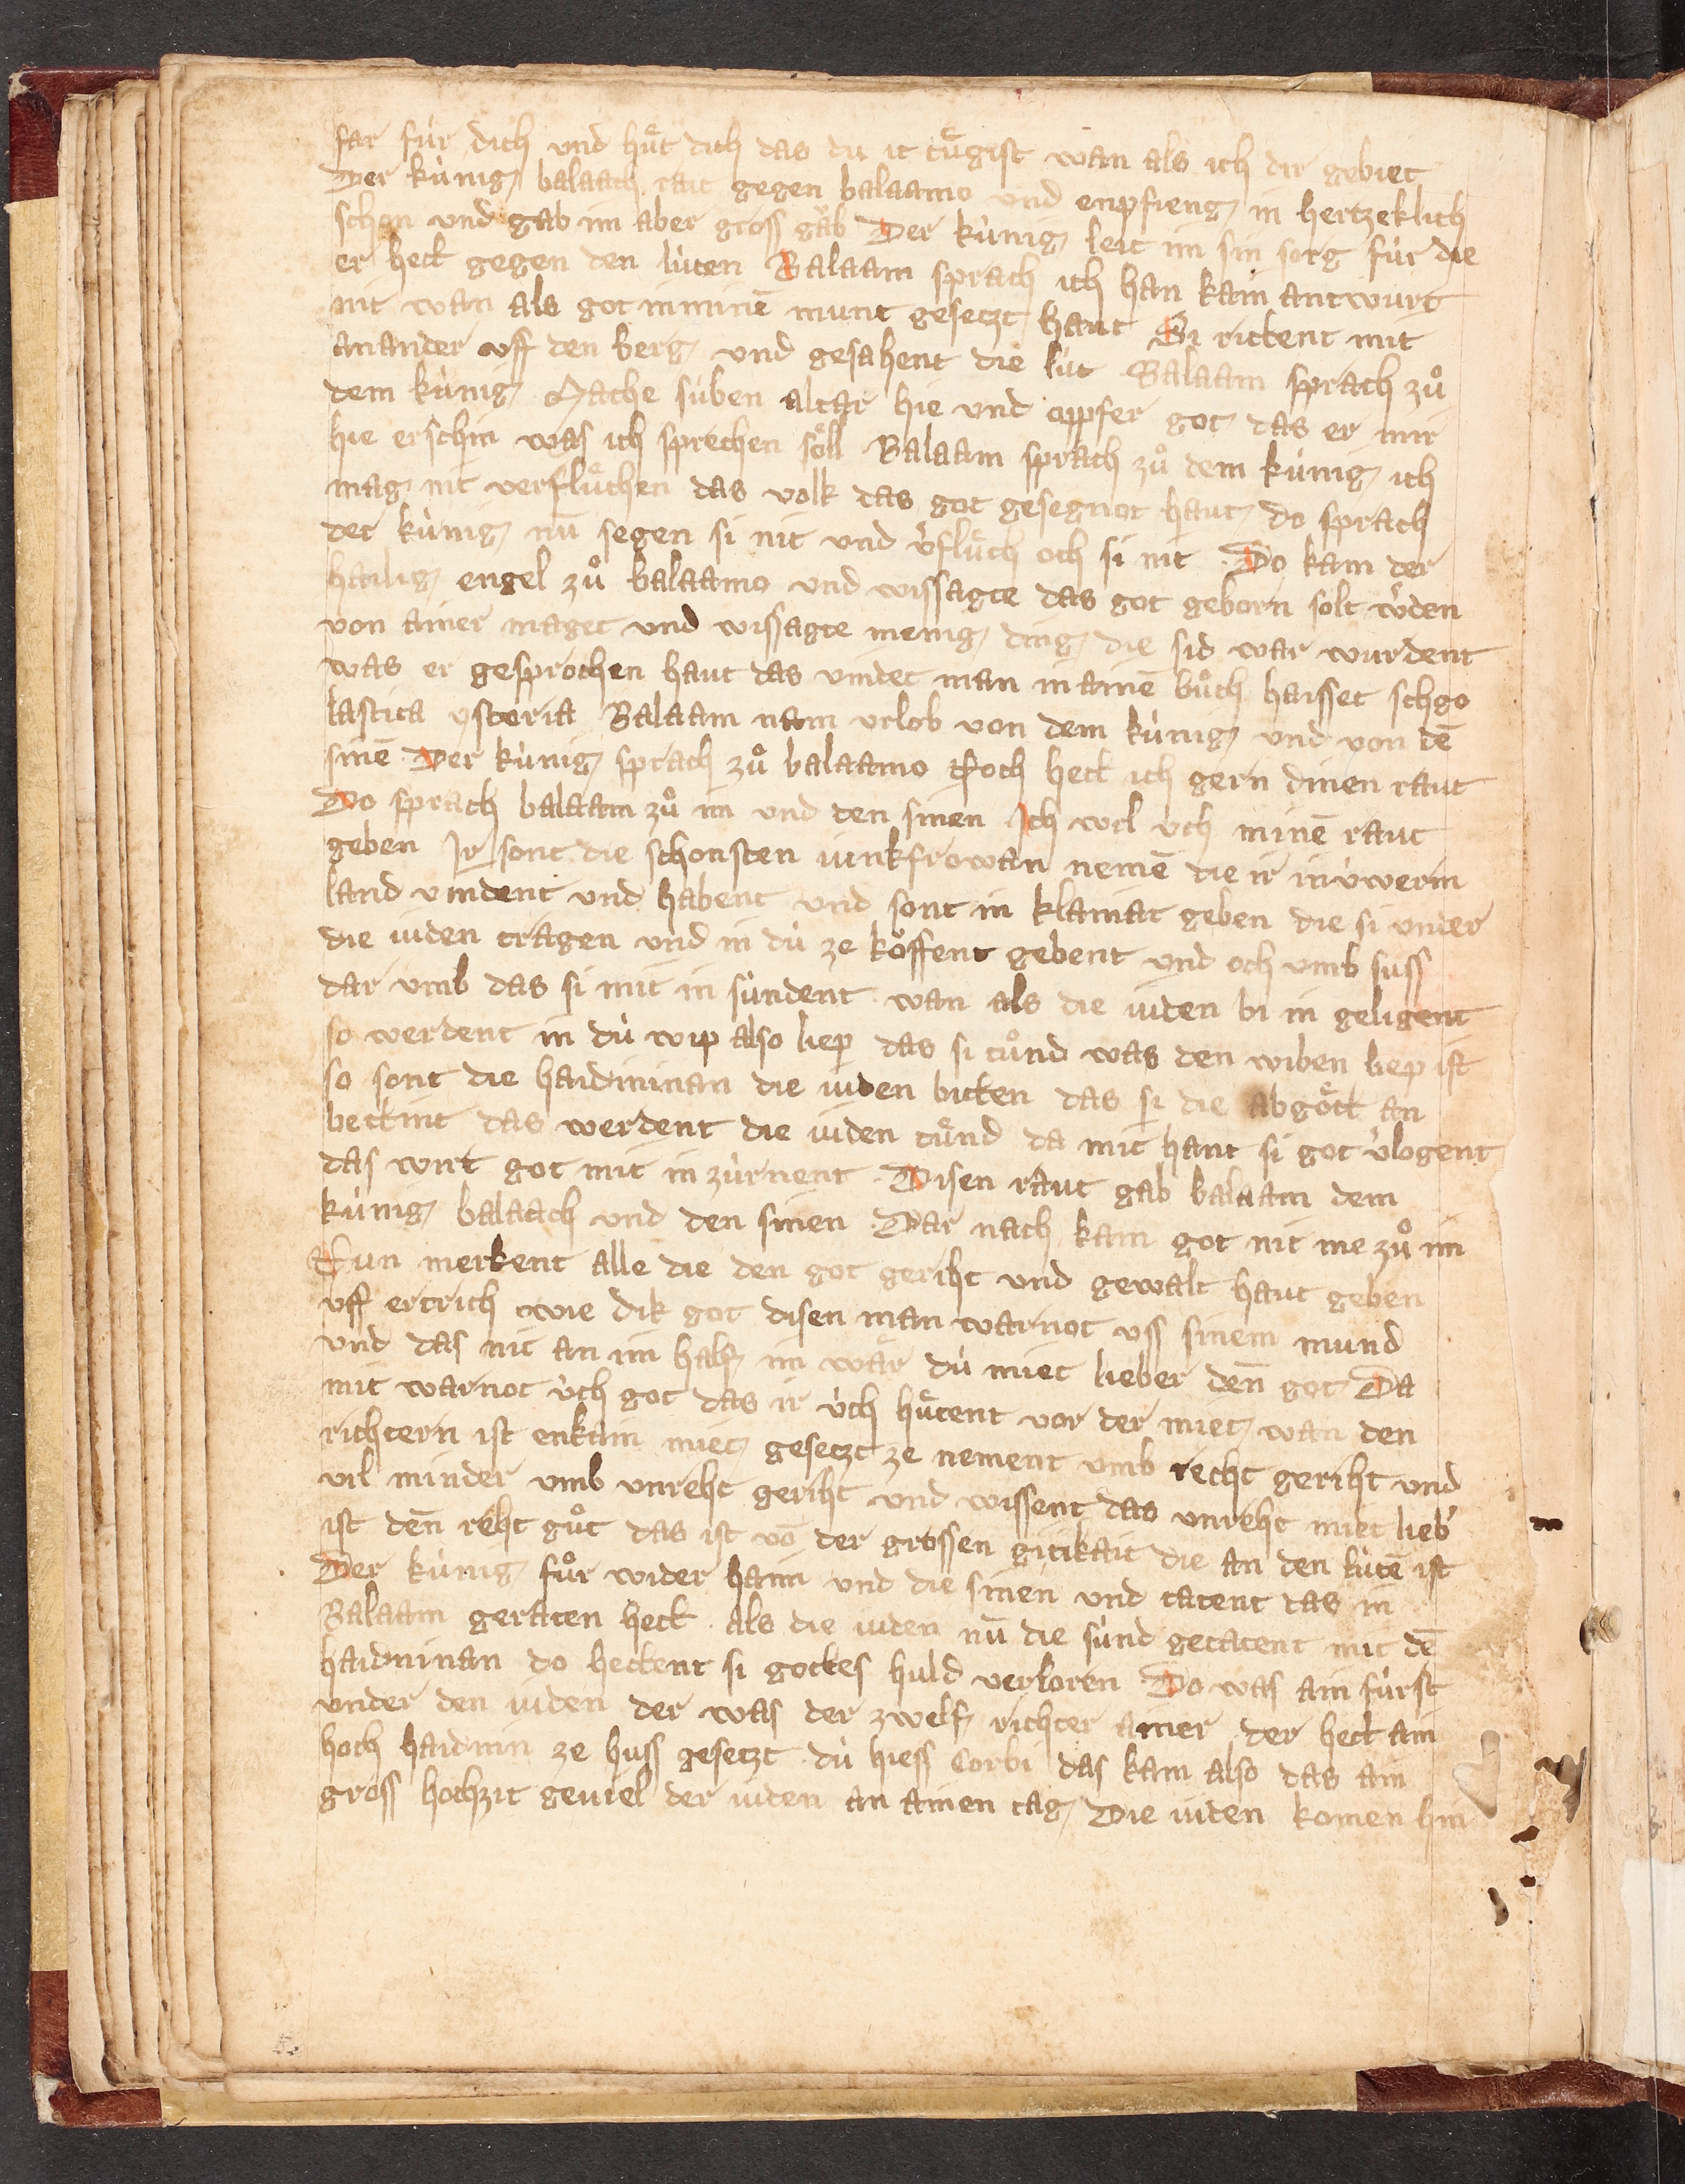 far fúr dich und huͤt dich das du it tuͤgist wan als ich dir gebiet
Der kúnig balaach rait gegen balaamo und enpfieng in hertzeklich
schon und gab im aber gross gaͤb Der kúnig leit im sin sorg fúr die
er hett gegen den lúten Balaam sprach ich han kain antwurt
nit wan als got in minē munt gesetzt haut Si rittent mit
ainander vff den berg und gesahent die lút Balaam sprach zuͦ
dem kúnig Mache súben altar hie und oppfer got das er mir
hie erschin was ich sprechen soͤll Balaam sprach zuͦ dem kúnig ich
mag nit verfluͤchen das volk das got gesegnot haut do sprach
der kúnig nū segen si nit und v̓fluͤch och si nit Do kam der
hailig engel zuͦ balaamo und wissagte das got geborn solt w̓den
von ainer maget und wissagte menig ding die sid war wurdent
was er gesprochen haut das vindet man in ainē buͦch haisset schgo
lastica ystoria Balaam nam vrlob von dem kúnig und von dē
sinē Der kúnig sprach zuͦ balaamo Noch hett ich gern dinen raut
Do sprach balaam zuͦ im und den sinen Ich wil úch minē raut
geben Ir sont die schonsten iunkfrowan nemē die ir in úwerm
land vindent und habent und sont in klainat geben die si vnder
die iuden tragen und in dú ze koͤffent gebent und och vmb suss
dar vmb das si mit in súndent wan als die iuden bi in geligent
so werdent in dú wip also liep das si tuͦnd was den wiben liep ist
so sont die haidninan die iuden bitten das si die abgoͤtt an
bettint das werdent die iuden tuͦnd da mit hant si got v̓logent
das wirt got mit in zúrnent Disen raut gab balaam dem
kúnig balaach und den sinen Dar nach kam got nit me zuͦ im
Nun merkent alle die den got geriht und gewalt haut geben
vff ertrich wie dik got disen man warnot vss sinem mund
und das nit an im half im waͤr dú miet lieber deñ got Da
mit warnot úch got das ir úch huͤtent vor der miet wan den
richtern ist enkain miet gesetzt ze nement vmb recht geriht und
vil minder vmb vnreht geriht und wissent das vnreht miet lieb̓
ist deñ reht guͦt das ist vō der grossen gitikait die an den lútē ist
Der kúnig fuͦr wider haim und die sinen und tatent das in
Balaam geraten hett als die iuden nū die súnd getatent mit dē
haidninan do hettent si gottes huld verloren Do was ain fúrst
vnder den iuden der was der zwelf richter ainer der hett ain
hoch haidnin ze huss gesetzt dú hiess Corbi das kam also das ain
gross hochzit geuiel der iuden an ainen tag Die iuden komen hin